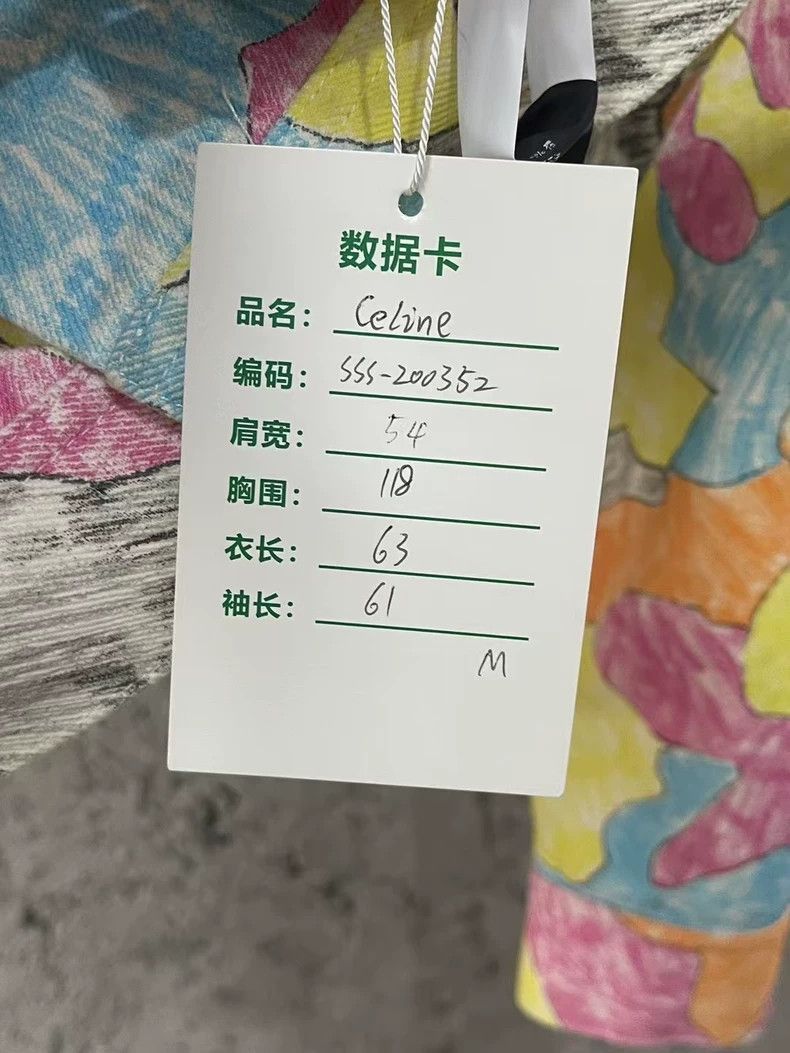 数据卡
品名： Celine
编码： SSS-200352
肩宽： 54
胸围： 118
衣长： 63
袖长： 61
M